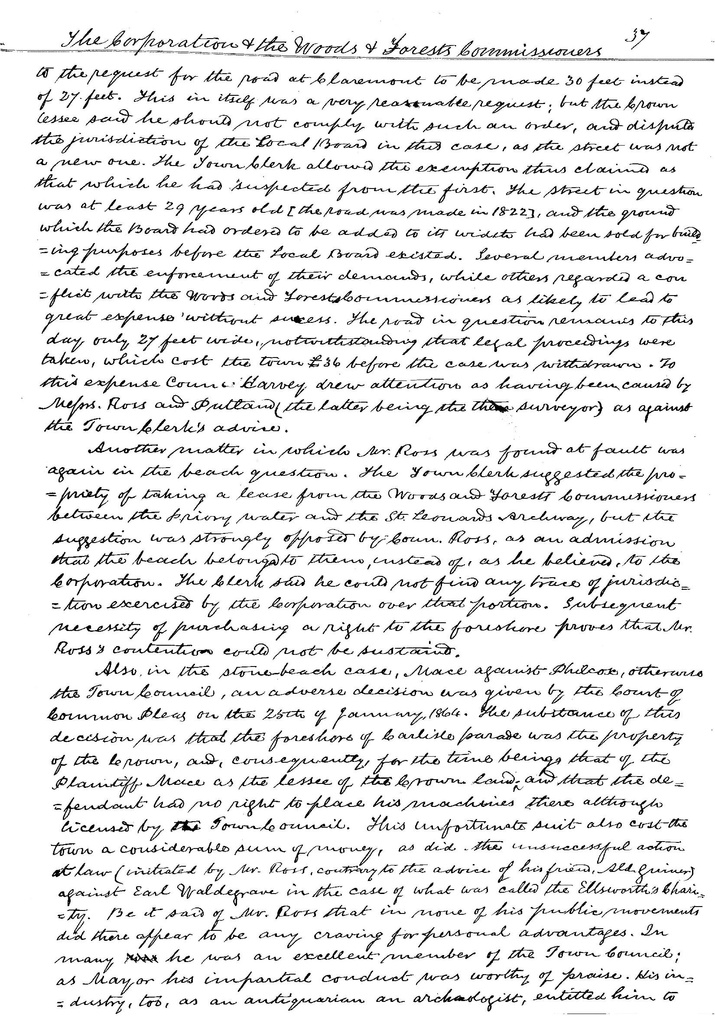 37
The Corporation & the Woods & Forests Commissioners
to the request for the road at Claremont to be made 30 feet instead
of 27 feet. This in itself was a very reasonable request; but the Crown
lessee said he should not comply with such an order, and dispute
the jurisdiction of the Local Board in this case, as the street was not
a new one. The Town Clerk allowed the exemption thus claimed as
that which he had suspected from the first. The street in question
was at least 29 years old [the road was made in 1822], and the ground
which the Board had ordered to be added to its width had been sold for build=
=ing purposes before the Local Board existed. Several members advo=
=cated the enforcement of their demands, while others regarded a con
=flict with the Woods and Forests Commissioners as likely to lead to
great expense without sucess. The road in question remains to this
day only 27 feet wide, notwithstanding that legal procedings were
taken, which cost the town £36 before the case was withdrawn. To
this expense Coun: Harvey drew attention as having been caused by
Messrs. Ross and Putland (the latter being the then surveyor) as against
the Town Clerk's advice.
Another matter in which Mr. Ross was found at fault was
again in the beach question. The Town Clerk suggested the pro=
=priety of taking a lease from the Woods and Forests Commissioners
between the Priory water and the St. Leonards Archway, but the
suggestion was strongly opposed by Coun. Ross, as an admission
that the beach belonged to them, instead of, as he believed, to the
Corporation. The Clerk said he could not find any trace of jurisdic=
=tion exercised by the Corporation over that portion. Subsequent
necessity of purchasing a right to the foreshore proves that Mr.
Ross's contention could not be sustaind.
Also, in the stone-beach case, Mace against Philcox, otherwise
the Town Council, an adverse decision was given by the Court of
Common Pleas on the 25th of January, 1864. The substance of this
decision was that the foreshore of Carlisle parade was the property
of the Crown, and, consequently, for the time beings that of the
Plaintiff Mace as the lessee of the Crown land, and that the de=
=fendant had no right to place his machines there although
licensed by the Town Council. This unfortunate suit also cost the
town a considerable sum of money, as did the unsuccessful action
at law (initiated by Mr. Ross, contrary to the advice of his friend, Ald. Ginner)
against Earl Waldegrave in the case of what was called the Ellsworth's Chari=
=ty. Be it said of Mr. Ross that in none of his public movements
did there appear to be any craving for personal advantages. In
many he was an excellent member of the Town Council;
as Mayor his impartial conduct was worthy of praise. His in=
=dustry, too, as an antiquarian an archæologist, entitled him to